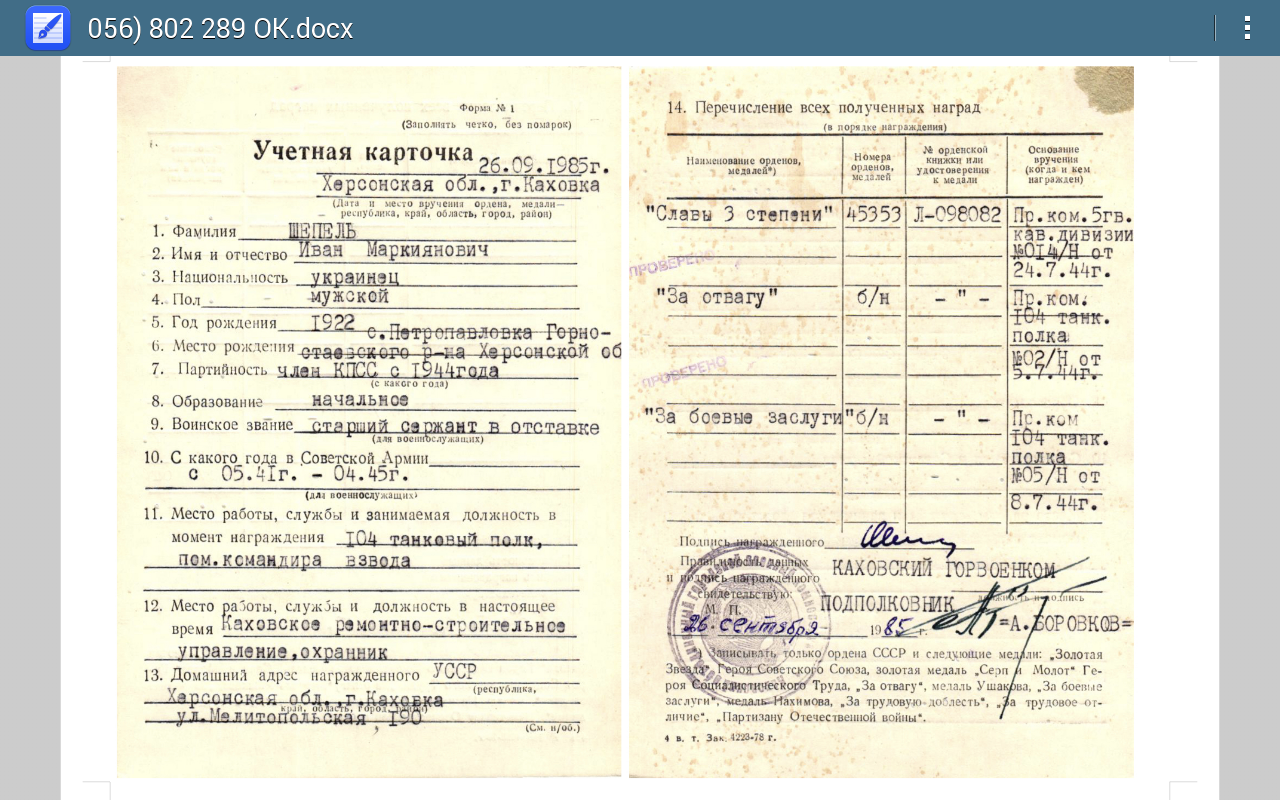 056) 802 289 OK.docx
Форма № 1
(Заполнять четко, без помарок)
Учетная карточка
26.09.1985г.
Херсонская обл.,г.Каховка
(Дата и место вручения ордена, медали—
республика, край, область, город, район)
1. Фамилия ШЕПЕЛЬ
2. Имя и отчество Иван Маркиянович
3. Национальность украинец
4. Пол мужской
5. Год рождения 1922 с.Петропавловка Горно-
6. Место рождения стаевского р-на Херсонской об
7. Партийность член КПСС с 1944года
(с какого года)
8. Образование начальное
9. Воинское звание старший сержант в отставке
(для военнослужащих)
10. С какого года в Советской Армии
с 05.41г. - 04.45г.
(для военнослужащих)
11. Место работы, службы и занимаемая должность в
момент награждения 104 танковый полк,
пом.командира взвода
12. Место работы, службы и должность в настоящее
время Каховское ремонтно-строительное
управление,охранник
13. Домашний адрес награжденного УССР
(республика,
Херсонская обл.,г.Каховка
край, область, город, район)
ул.Мелитопольская ,190
(См. н/об.)
14. Перечисление всех полученных наград
(в порядке награждения)
Наименование орденов, медалей*)
Номера орденов, медалей
№ орденской книжки или удостоверения к медали
Основание вручения (когда и кем награжден)
"Славы 3 степени" 45353 Л-098082 Пр.ком.5гв.
кав.дивизии
№014/Н от
24.7.44г.
ПРОВЕРЕНО
"За отвагу" б/н - " - Пр.ком.
104 танк.
полка
№02/Н от
5.7.44г.
ПРОВЕРЕНО
"За боевые заслуги" б/н - " - Пр.ком
104 танк.
полка
№05/Н от
8.7.44г.
Подпись награжденного
Правильность данных
и подпись награжденного
свидетельствую:
КАХОВСКИЙ ГОРВОЕНКОМ
должность и подпись
М. П.
ПОДПОЛКОВНИК
=А.БОРОВКОВ=
26 сентября 1985 г.
*) Записывать только ордена СССР и следующие медали: „Золотая
Звезда" Героя Советского Союза, золотая медаль „Серп и Молот" Ге-
роя Социалистического Труда, „За отвагу", медаль Ушакова, „За боевые
заслуги", медаль Нахимова, „За трудовую доблесть", „За трудовое от-
личие", „Партизану Отечественной войны".
4 в. т. Зак. 4223-78 г.